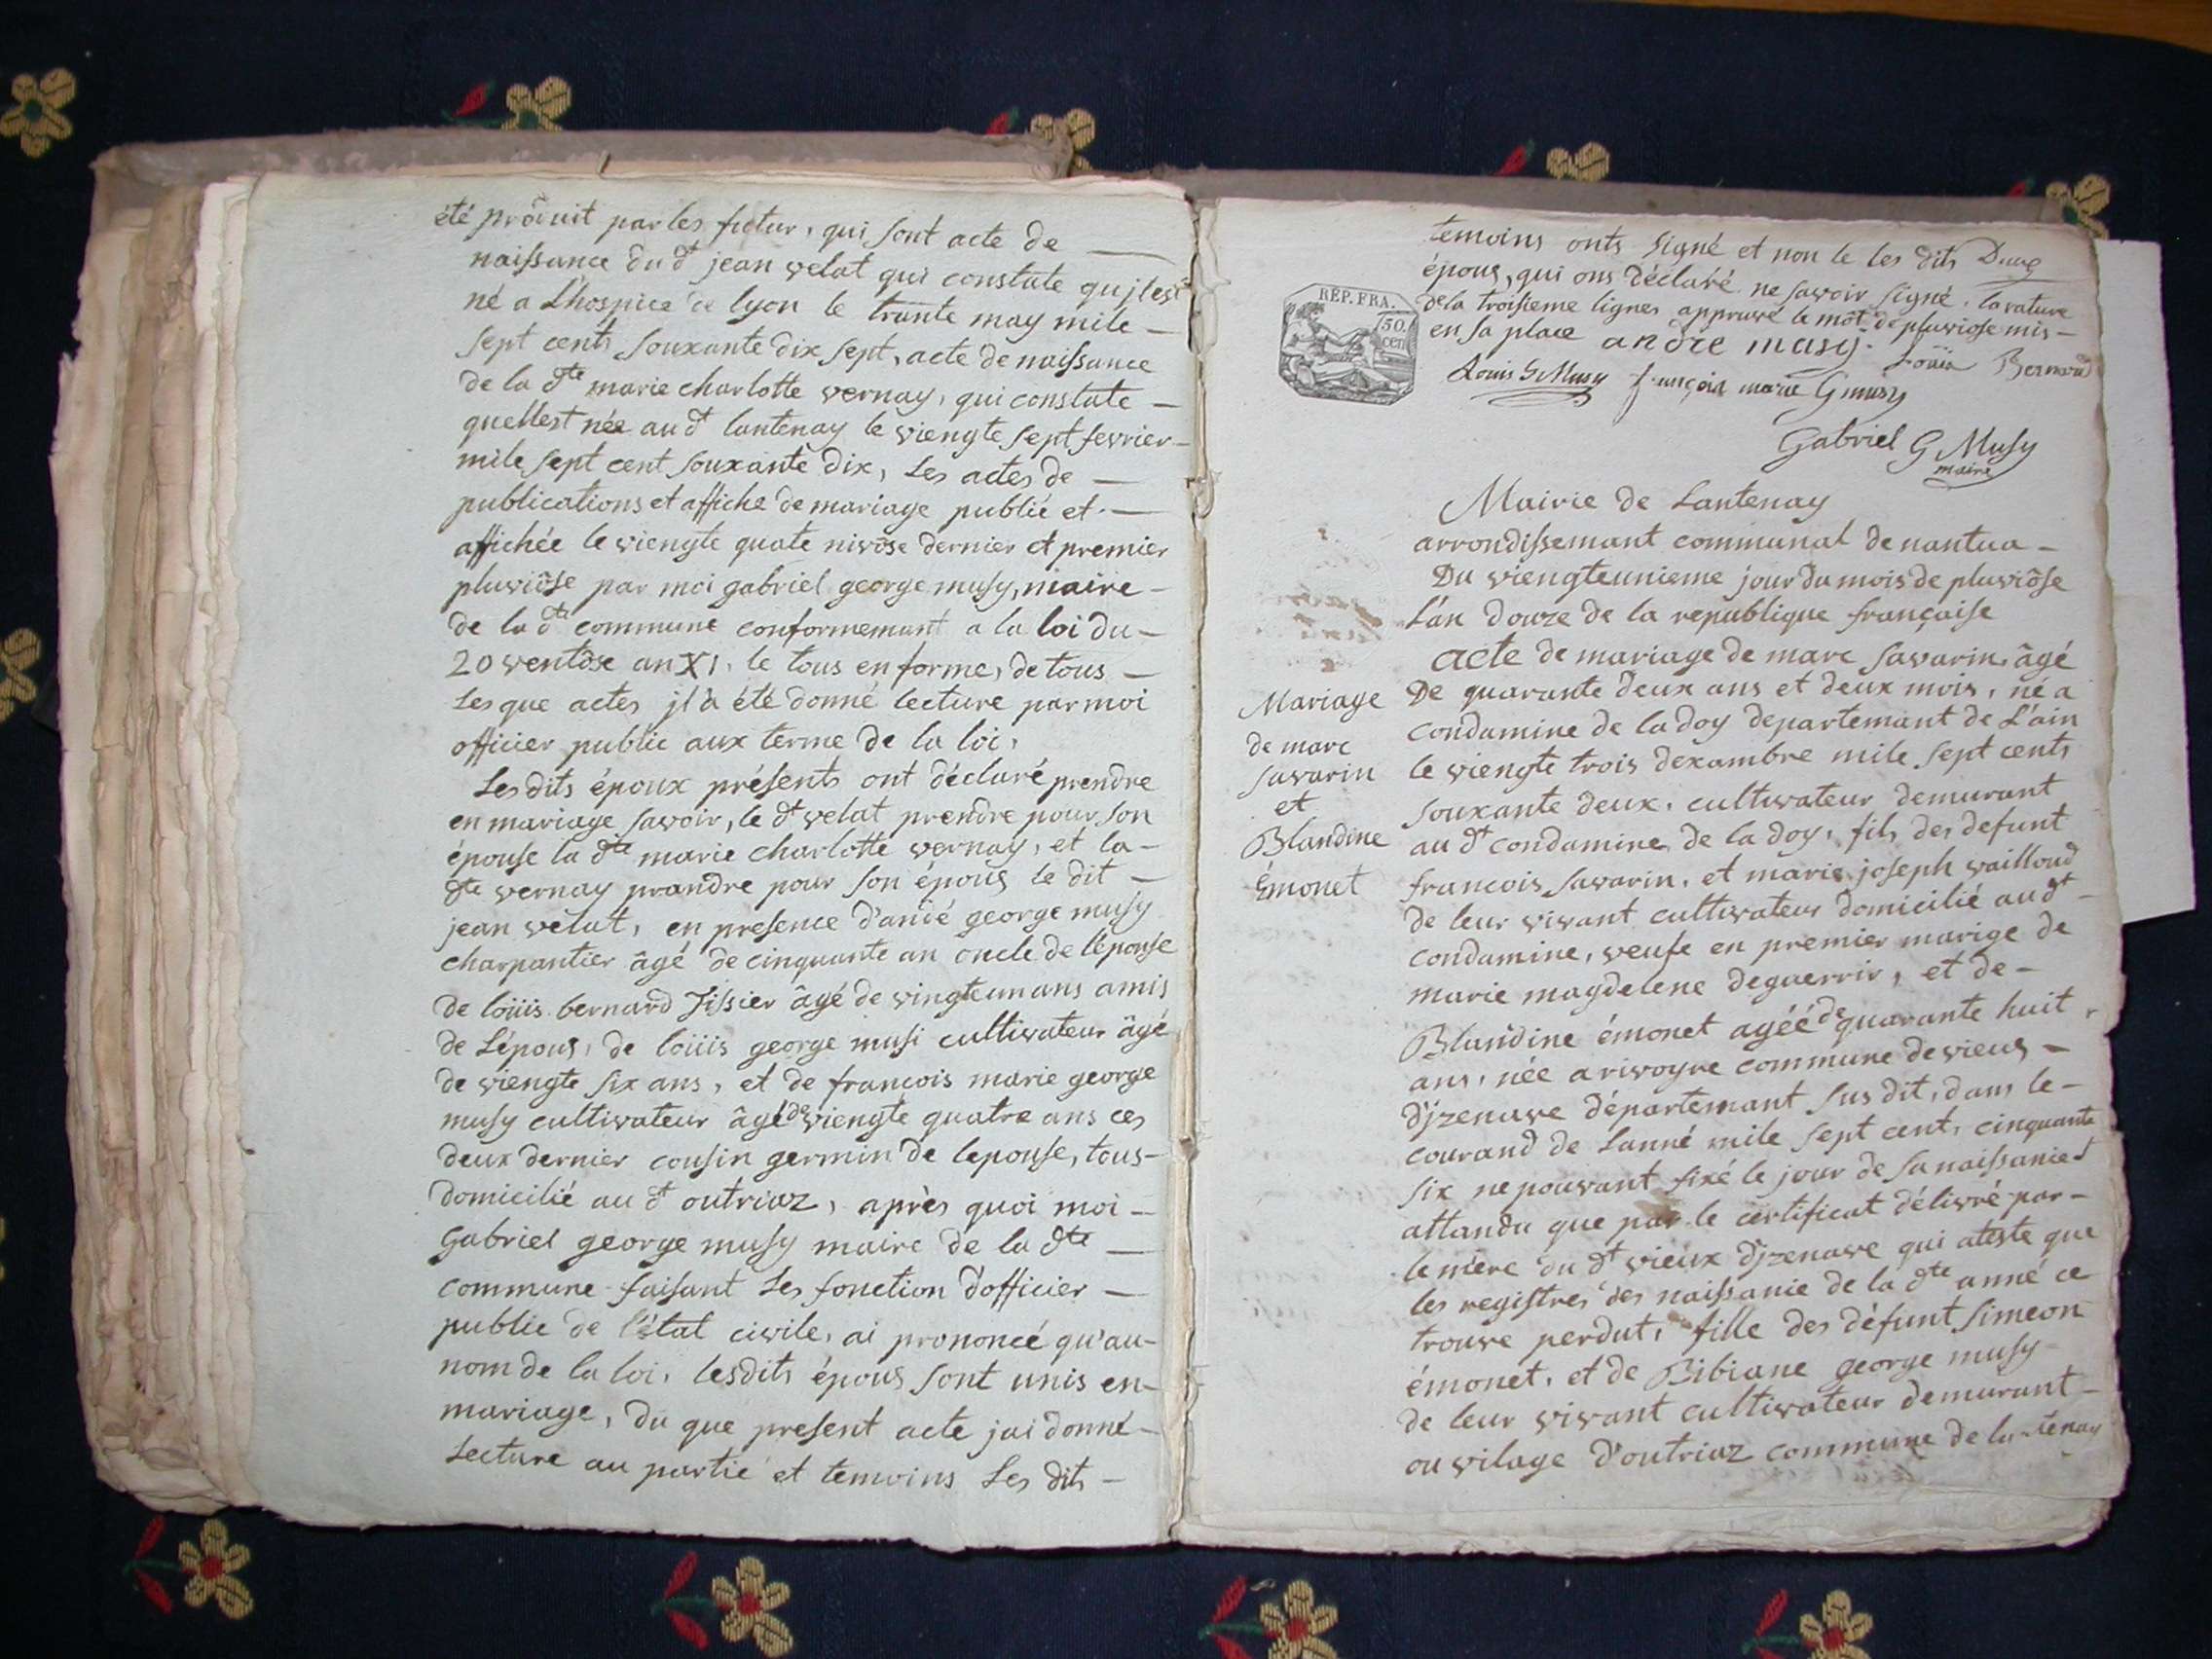 été produit par les futur, qui sont acte de
naissance du dt jean velat qui constate qu jl est
né a L'hospice de lyon le trante may mile
sept cents souxante dix sept, acte de naissance
de la dte marie charlotte vernay, qui constate
quellest née au dt lantenay le viengte sept fevrier
mile sept cent souxante dix, Les actes de
publications et affiche de mariage publié et
affichée le viengte quate nivôse dernier et premier
pluviôse par moi gabriel george musy, maire
de la dte commune conformemant a la loi du
20 ventôse an XI, le tous en forme, de tous
Les que actes jl a été donné lecture par moi
officier public aux terme de la loi,
Les dits époux présents ont déclaré prendre
en mariage savoir, le dt velat prendre pour son
épouse la dte marie charlotte vernay, et la
dte vernay prandre pour son épous le dit
jean velat, en presence d'andé george musy
charpantier âgé de cinquante an oncle de l'épouse
de loüis bernard Tissier âgé de vingte un ans amis
de L'épous, de loüis george musi cultivateur âgé
de viengte six ans, et de francois marie george
musy cultivateur âgé de viengte quatre ans ces
deux dernier cousin germin de lepouse, tous
domicilié au dt outriaz, après quoi moi
gabriel george musy maire de la dte
commune faisant Les fonction d'officier
public de l'état civile, ai prononcé qu'au
nom de la loi, lesdits épous sont unis en
mariage, du que present acte jai donné
Lecture au partie et temoins Les dits
temoins onts signé et non le les dits
épous, qui ons déclaré ne savoir signé. la rature
de la troisieme lignes appruvé le môt de pluviose mis
en sa place andré musy. Loüis Bernard
REP. FRA.
50.
cen
Louis G Musy françois marie G musy
Gabriel G Musy
maire
Mairie de Lantenay
arrondissemant communal de nantua
Du viengteunieme jour du mois de pluviôse
L'an douze de la republique française
Mariage
de marc
savarin
et
Blandine
Émonet
acte de mariage de marc savarin, âgé
De quarante deux ans et deux mois, né a
condamine de la doy departemant de L'ain
le viengte trois dexambre mile sept cents
souxante deux, cultivateur demurant
au dt condamine de la doy, fils des defunt
francois savarin, et marie joseph vailloud
de leur vivant cultivateur domicilié au dt
condamine, veufe en premier marige de
marie magdelene deguerrir, et de
Blandine émonet agéé de quarante huit
ans, née a rivoyre commune de vieus
d'jzenave départemant sus dit, dans le
courand de Lanné mile sept cent, cinquante
six ne pouvant fixé le jour de sa naissanie
attandu que par le certificat délivré par
le mere du dt vieux d'jzenave qui ateste que
les registres des naissanie de la dte anné ce
trouve perdut, fille des défunt simeon
émonet, et de Bibiane george musy
de leur vivant cultivateur demurant
ou vilage d'outriaz commune de lantenay